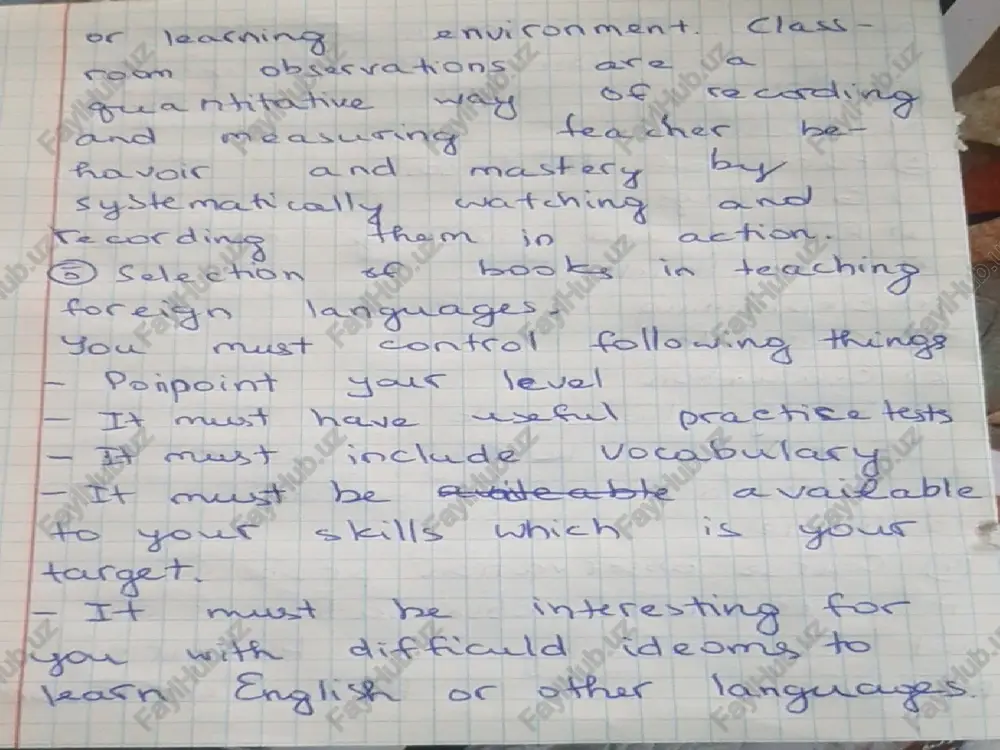 or learning environment. Class-
room observations are a
quantitative way of recording
and measuring teacher be-
havoir and mastery by
systematically watching and
recording them in action.
⑤ Selection of books in teaching
foreign languages.
You must control following things
- Poinpoint your level
- It must have useful practise tests
- It must include vocabulary
- It must be available
to your skills which is your
target.
- It must be interesting for
you with difficuld ideoms to
learn English or other languages.
FaylHub.uz